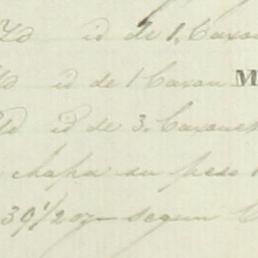 id de 1. Caxon
id de 1 Caxon M
id de 3. Caxones
chapa su peso
39 1/2 oz— segun